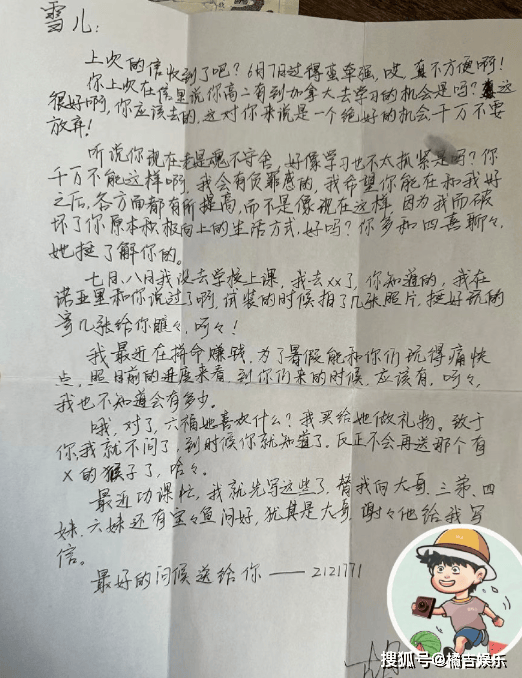 雪儿：
上次的信收到了吧？6月7日过得蛮牵强，哎，真不方便啊！
你上次在信里说你高二有到加拿大去学习的机会是吗？真这
很好啊，你应该去的，这对你来说是一个绝好的机会千万不要
放弃！
听说你现在老是魂不守舍，好像学习也不太抓紧是吗？你
千万不能这样啊，我会有负罪感的，我希望你能在和我好
之后，各方面都有所提高，而不是像现在这样，因为我而破
坏了你原本积极向上的生活方式，好吗？你多和四喜聊々，
她挺了解你的。
七月、八日我没去学校上课，我去xx了，你知道的，我在
诺亚里和你说过了啊，试装的时候拍了几张照片，挺好玩的
寄几张给你瞧々，呵々！
我最近在拚命赚钱，为了暑假能和你们玩得痛快
点，照目前的进度来看，到你们来的时候，应该有，呵々，
我也不知道会有多少。
哦，对了，六福她喜欢什么？我买给她做礼物。致于
你，我就不问了，到时候你就知道了，反正不会再送那个有
X的猴子了，哈々。
最近功课忙，我就先写这些了，替我向大哥、三弟、四
妹、六妹还有宝々鱼问好，犹其是大哥，谢々他给我写
信。
最好的问候送给你——2121771
搜狐号@橘吉娱乐